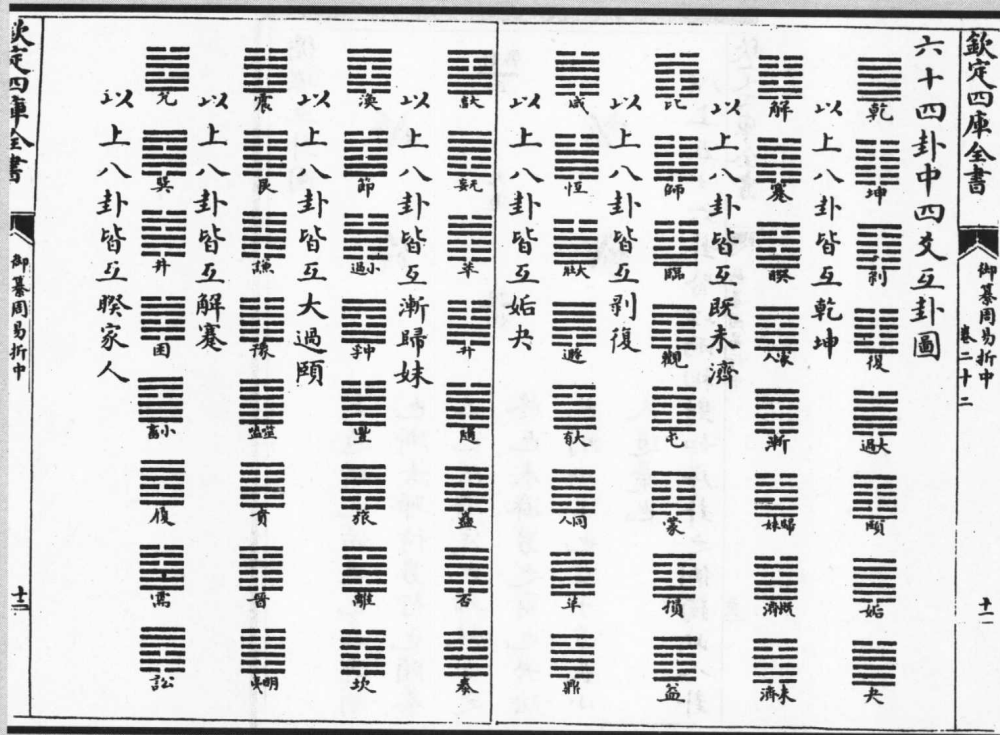 欽定四庫全書
御纂周易折中
卷二十二
十一
六十四卦中四爻互卦圖
乾 坤 剥 復 大過 頤 姤 夬
以上八卦皆互乾坤
解 蹇 睽 家人 漸 歸妹 既濟 未濟
以上八卦皆互既未濟
比 師 臨 觀 屯 蒙 損 益
以上八卦皆互剥復
咸 恒 大壯 遯 大有 同人 革 鼎
以上八卦皆互姤夬
大畜 无妄 萃 升 隨 蠱 否 泰
以上八卦皆互漸歸妹
渙 節 小過 中孚 豐 旅 離 坎
以上八卦皆互大過頤
震 艮 謙 豫 噬嗑 賁 晉 明夷
以上八卦皆互解蹇
兌 巽 井 困 小畜 履 需 訟
以上八卦皆互睽家人
欽定四庫全書
御纂周易折中
十二